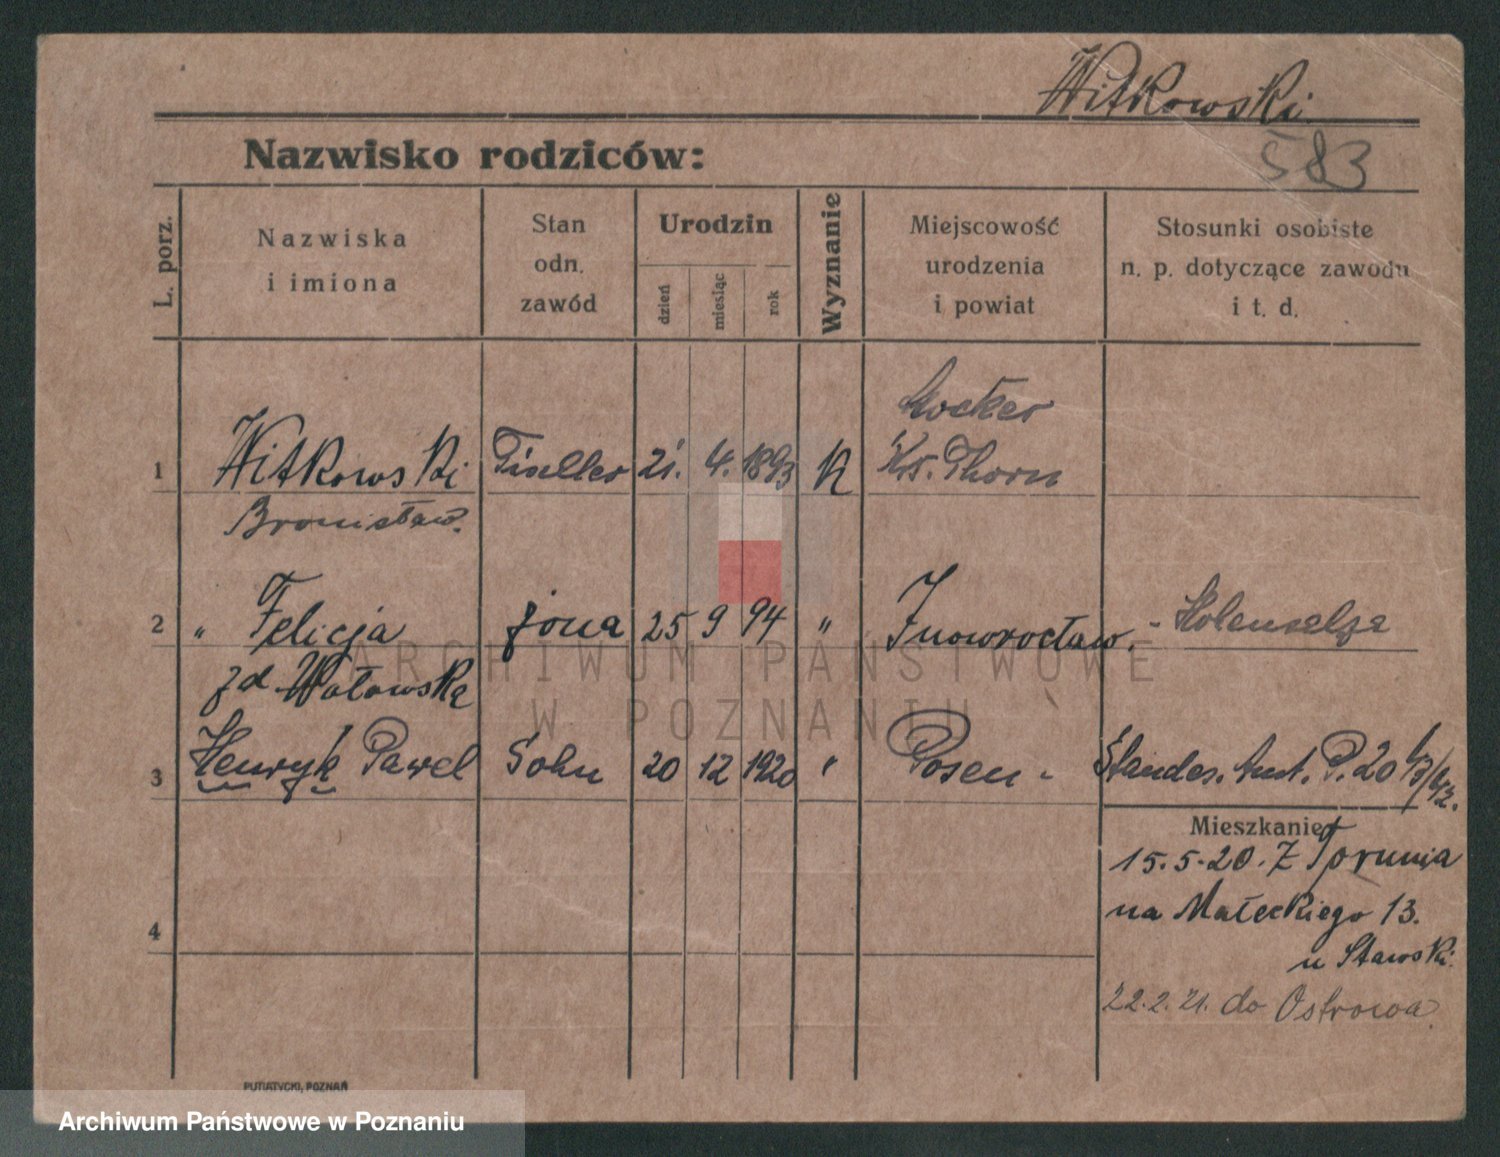 Witkowski.
583
Nazwisko rodziców:
L. porz.
Nazwiska
i imiona
Stan
odn.
zawód
Urodzin
dzień
miesiąc
rok
Wyznanie
Miejscowość
urodzenia
i powiat
Stosunki osobiste
n. p. dotyczące zawodu
i t. d.
1
Witkowski
Bronisław.
21. 4. 1893
K
Mocker
Krs. Thorn
2
" Felicja
zd Wołowska
żona
25 9 94
"
Inowrocław.
3
Henryk Paweł
Sohn
20 12 1920
"
Posen
Standes. Amt. P. 20
Mieszkanie
15.5.20. Z Torunia
na Małeckiego 13.
u Stawski.
22.2.21. do Ostrowa.
4
ARCHIWUM PAŃSTWOWE
W POZNANIU
PUTIATYCKI, POZNAŃ
Archiwum Państwowe w Poznaniu